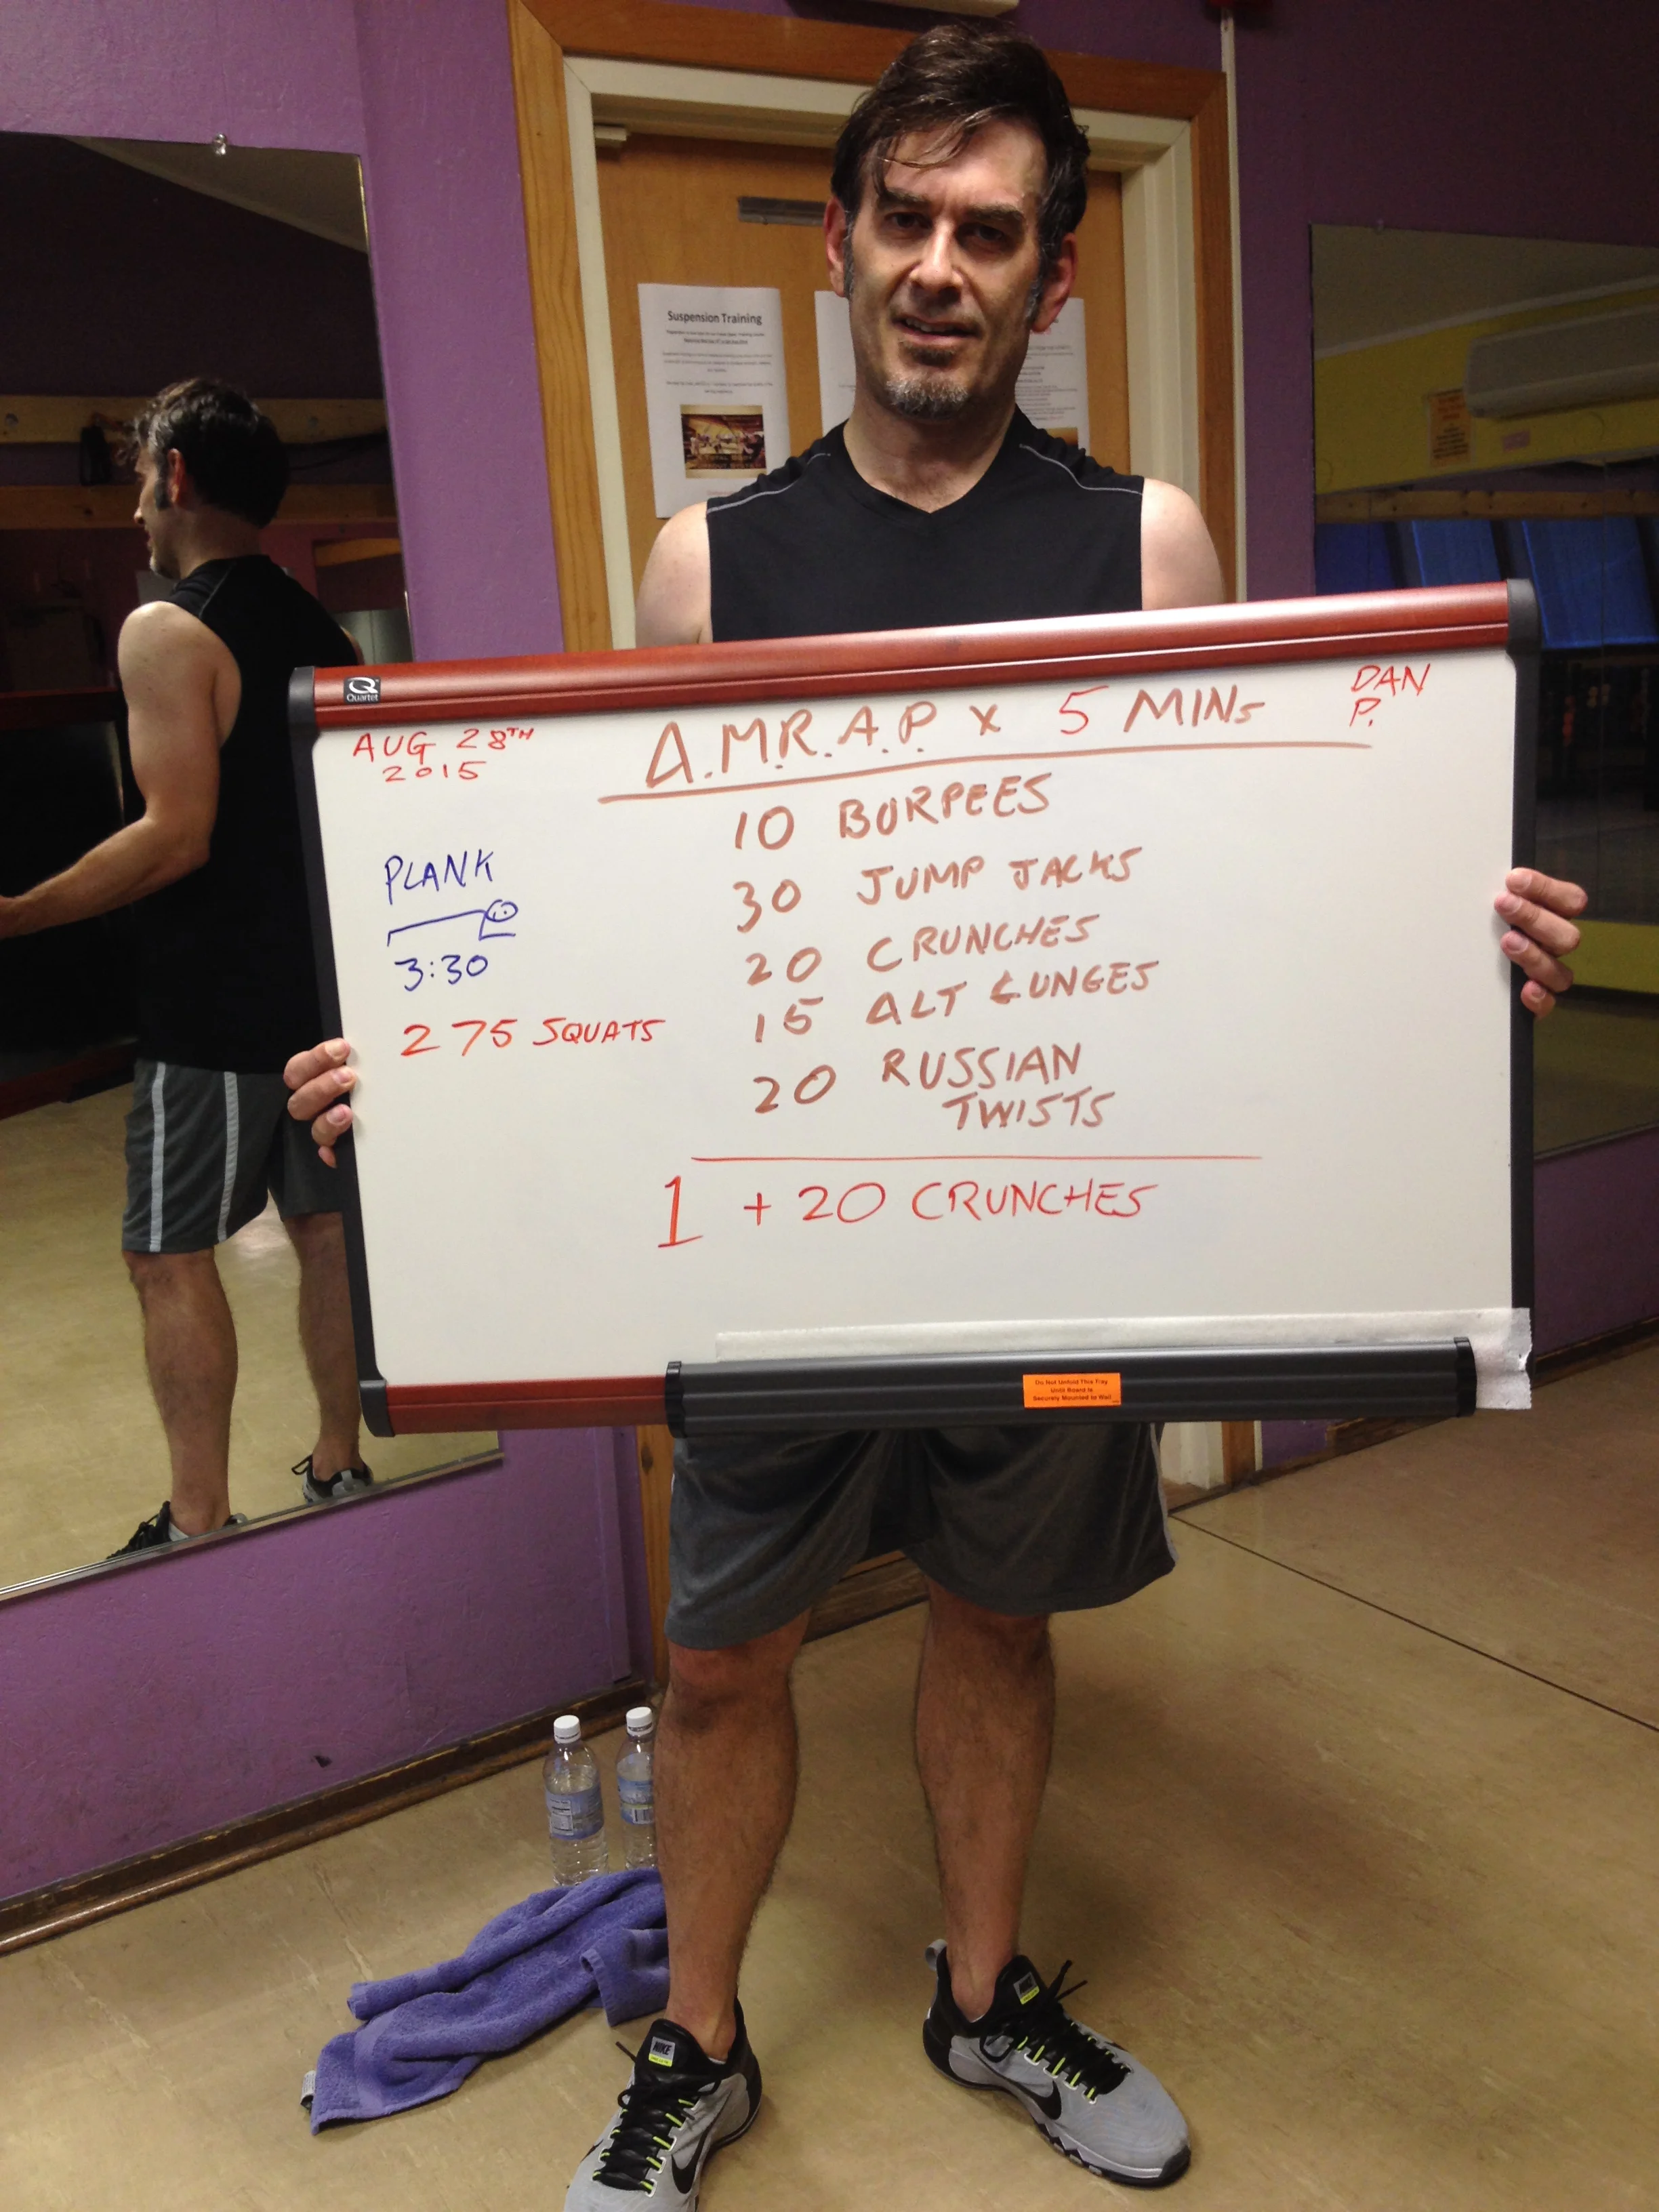 Suspension Training
Q
Quartet
AUG 28TH
2015
A.M.R.A.P. x 5 MINS
DAN
P.
10 BURPEES
30 JUMP JACKS
20 CRUNCHES
15 ALT LUNGES
20 RUSSIAN
TWISTS
PLANK
3:30
275 SQUATS
1 + 20 CRUNCHES
Do Not Unfold This Tray
Until Board is
Securely Mounted to Wall
NIKE